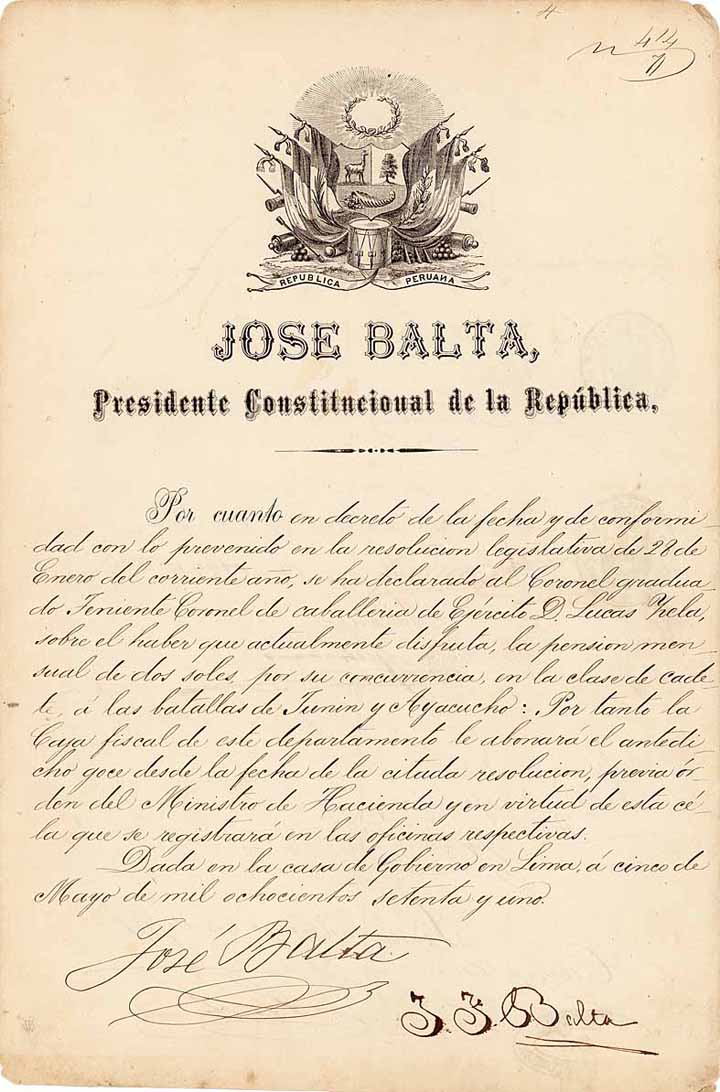 4
n 414/71
REPUBLICA PERUANA
JOSE BALTA,
Presidente Constitucional de la República,
Por cuanto en decreto de la fecha y de conformi
dad con lo prevenido en la resolucion legislativa de 28 de
Enero del corriente año, se ha declarado al Coronel gradua
do Teniente Coronel de caballeria de Ejército D. Lucas
sobre el haber que actualmente disfruta, la pension men
sual de dos soles, por su concurrencia, en la clase de cade-
te, á las batallas de Junin y Ayacucho: Por tanto la
Caja fiscal de este departamento le abonará el antedi
cho goce desde la fecha de la citada resolucion, previa ór
den del Ministro de Hacienda y en virtud de esta cé-
la que se registrará en las oficinas respectivas.
Dada en la casa de Gobierno en Lima, á cinco de
Mayo de mil ochocientos setenta y uno.
José Balta
J. F. Balta